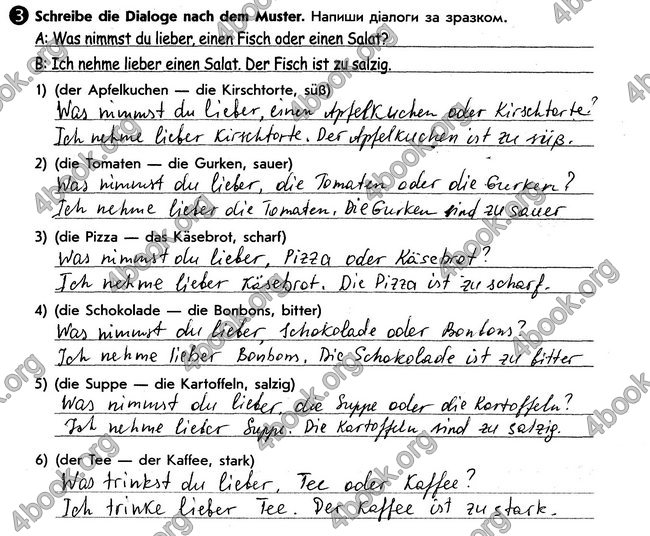 3 Schreibe die Dialoge nach dem Muster. Напиши діалоги за зразком.
A: Was nimmst du lieber, einen Fisch oder einen Salat?
B: Ich nehme lieber einen Salat. Der Fisch ist zu salzig.
1) (der Apfelkuchen — die Kirschtorte, süß)
Was nimmst du lieber, einen Apfelkuchen oder Kirschtorte?
Ich nehme lieber Kirschtorte. Der Apfelkuchen ist zu süß.
2) (die Tomaten — die Gurken, sauer)
Was nimmst du lieber, die Tomaten oder die Gurken?
Ich nehme lieber die Tomaten. Die Gurken sind zu sauer
3) (die Pizza — das Käsebrot, scharf)
Was nimmst du lieber, Pizza oder Käsebrot?
Ich nehme lieber Käsebrot. Die Pizza ist zu scharf.
4) (die Schokolade — die Bonbons, bitter)
Was nimmst du lieber, Schokolade oder Bonbons?
Ich nehme lieber Bonbons. Die Schokolade ist zu bitter
5) (die Suppe — die Kartoffeln, salzig)
Was nimmst du lieber, die Suppe oder die Kartoffeln?
Ich nehme lieber Suppe. Die Kartoffeln sind zu salzig.
6) (der Tee — der Kaffee, stark)
Was trinkst du lieber, Tee oder Kaffee?
Ich trinke lieber Tee. Der Kaffee ist zu stark.
4book.org